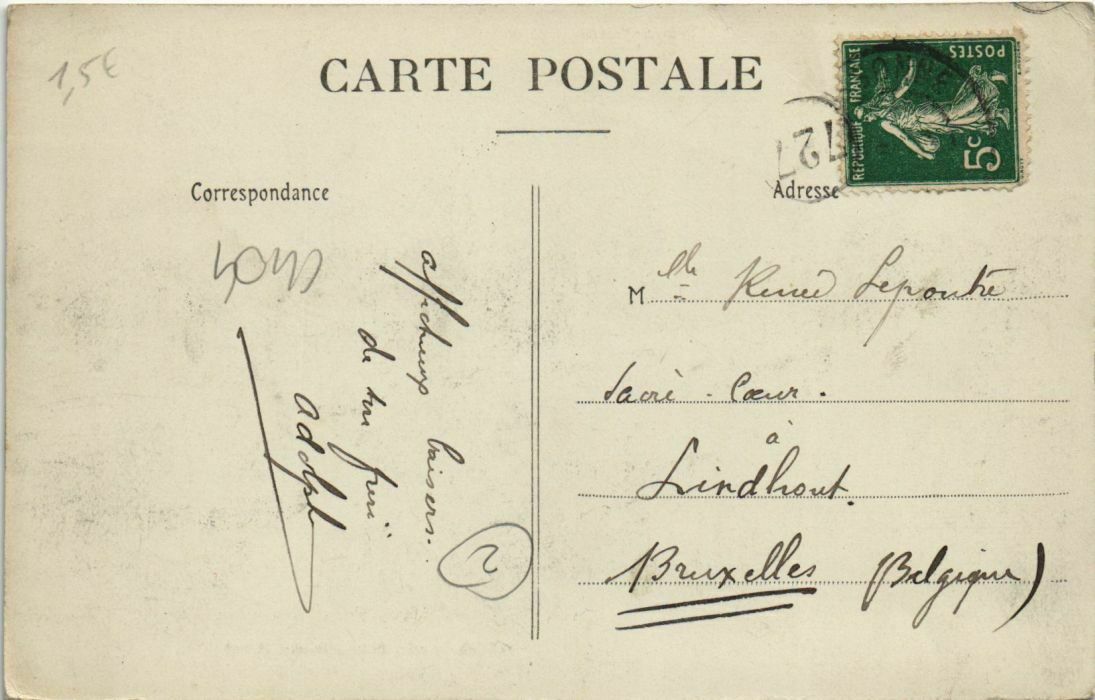 1,5€
CARTE POSTALE
RÉPUBLIQUE FRANÇAISE
POSTES
5c
727
Correspondance
Adresse
affectueux baisers.
de ton frère
Adolph
2
Mlle Renée Lepoutre
Sacré-Cœur.
à
Lindhout.
Bruxelles (Belgique)